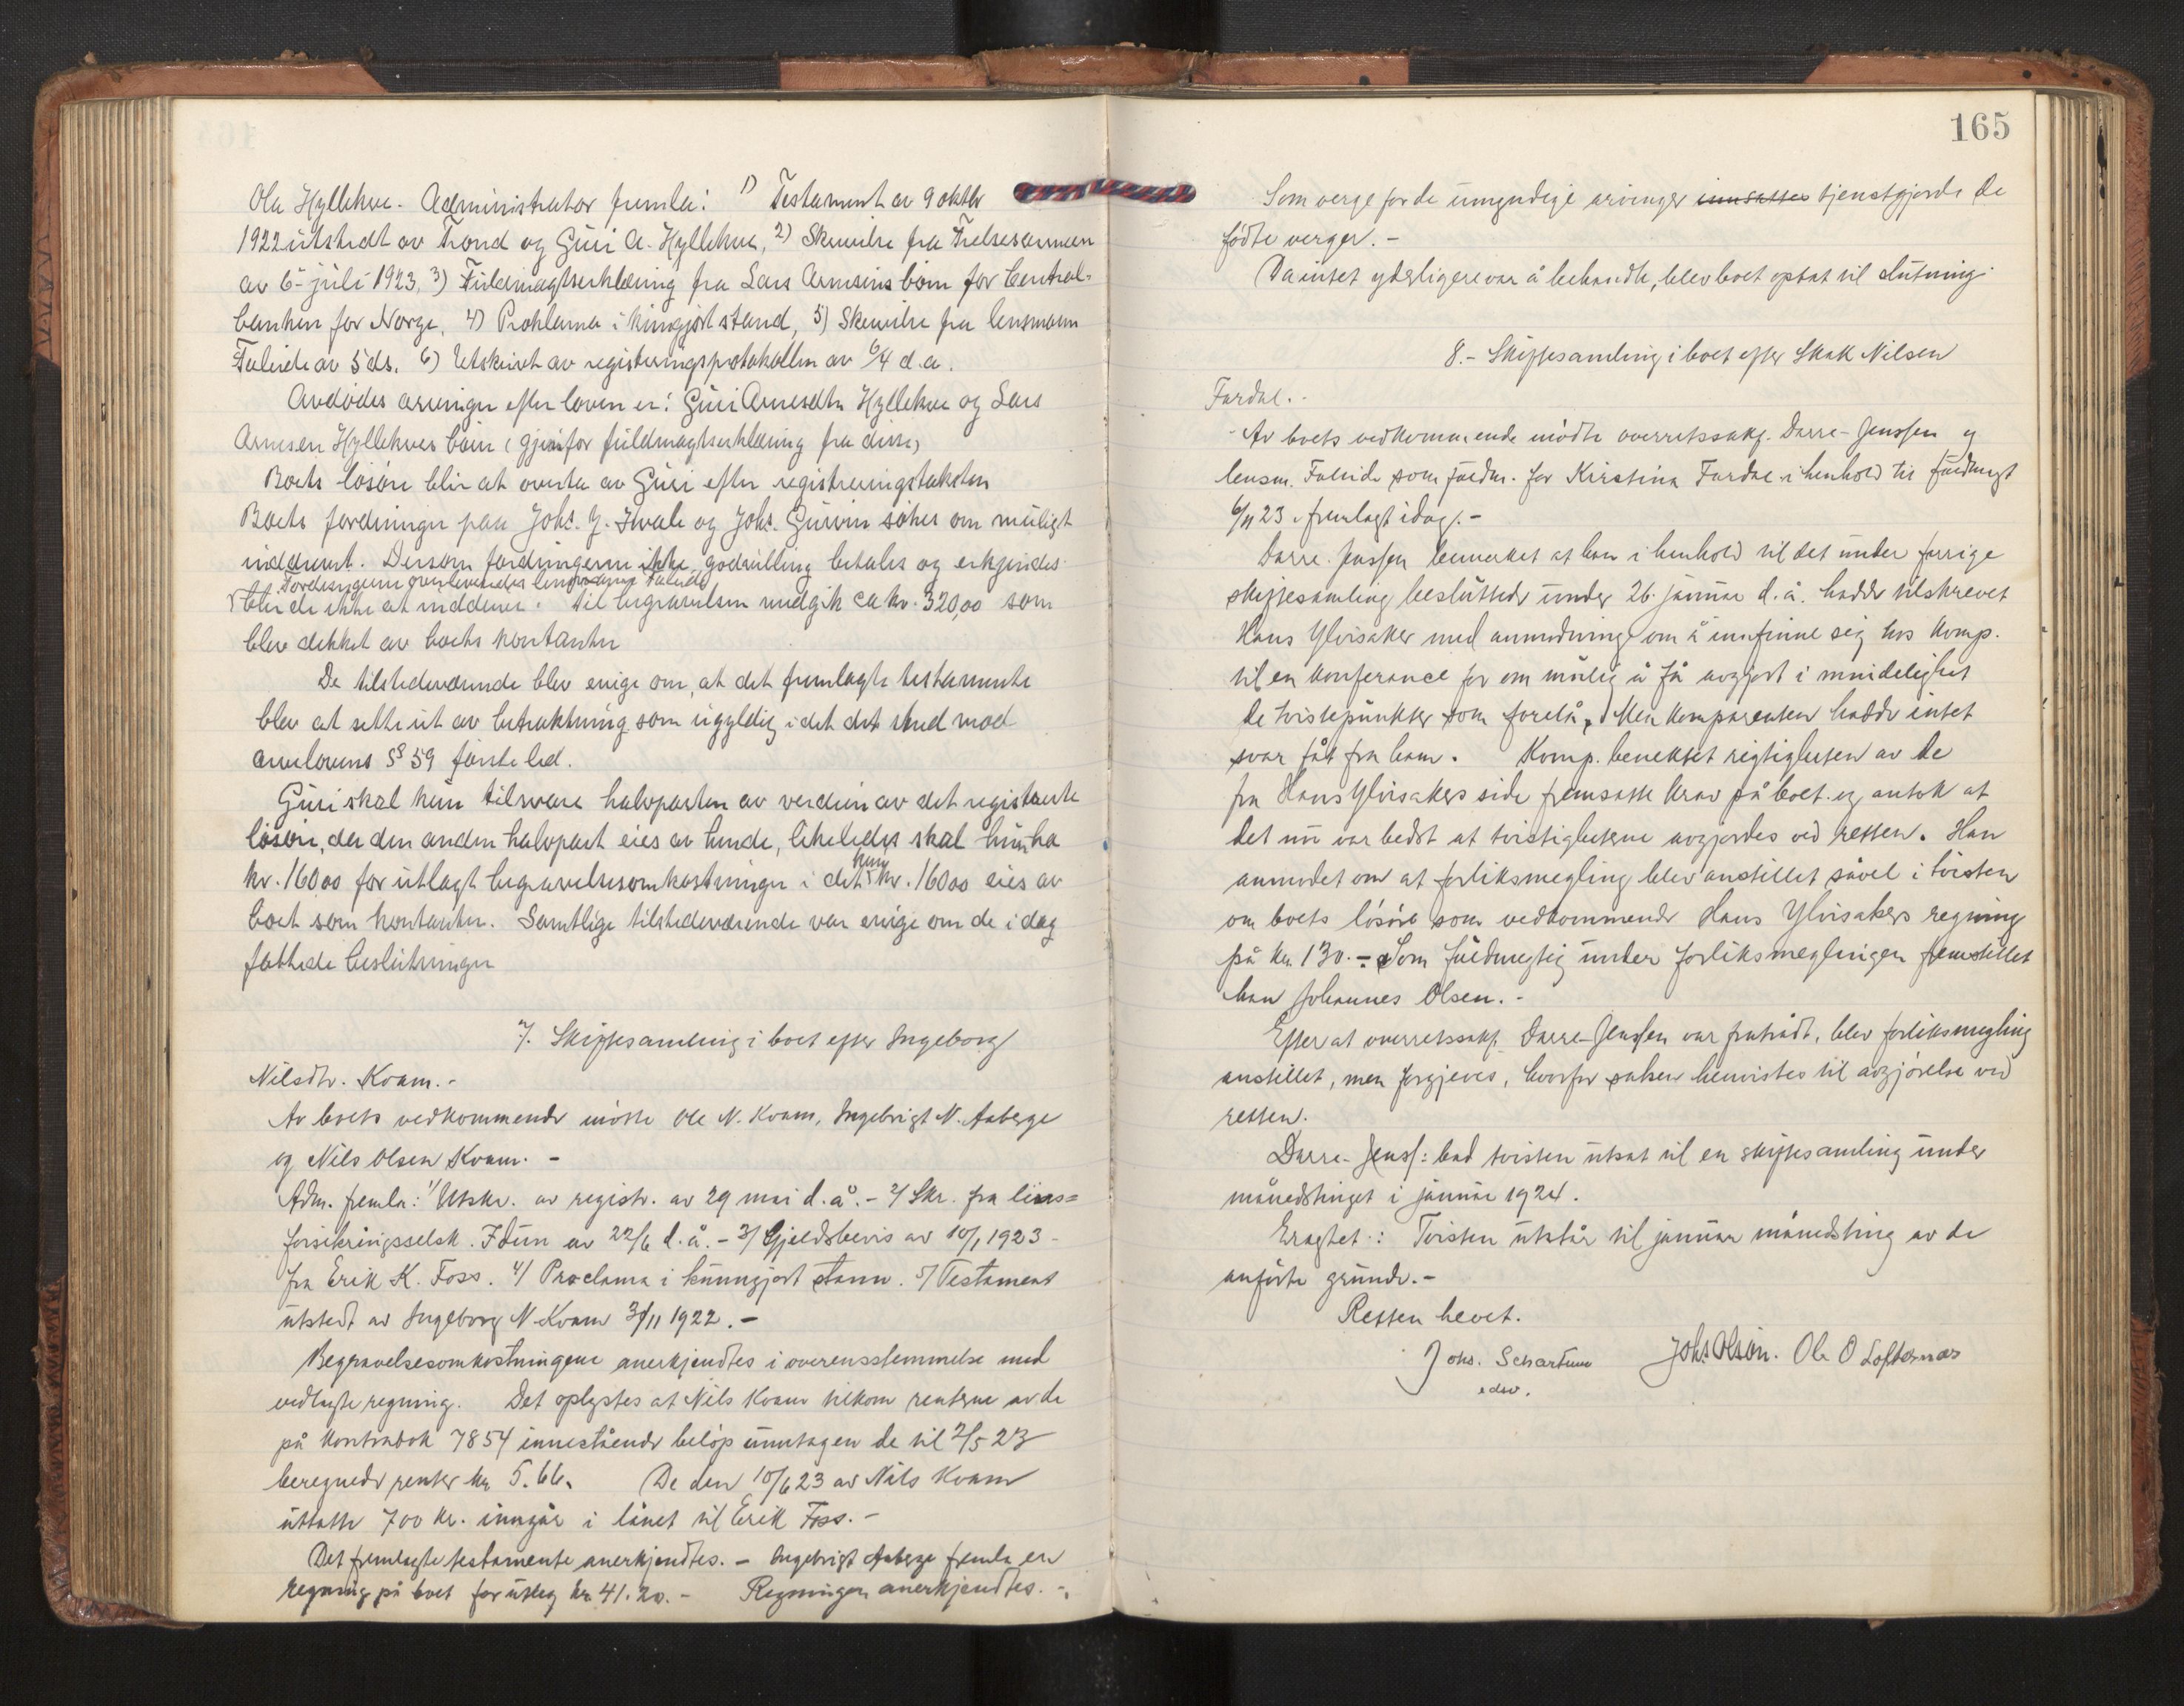 Ola Hyllekve. Administrator fremla: 1) Testament av 9 oktbr
1922 utstedt av Trond og Guri A. Hyllekve, 2) Skrivelse fra Frelsesarmeen
av 6 juli 1923, 3) Fuldmagtserklæring fra Lars Arnesens børn for Central-
banken for Norge, 4) Proklama i kungjort stand, 5) Skrivelse fra lensmann
Faleide av 5 ds. 6) Utskrivt av registreringsprotokollen av 6/4 d.a.
Avdødes arvinger efter loven er: Guri Arnesdtr Hyllekve og Lars
Arnesen Hyllekves børn (gjenfor fuldmagtserklæring fra disse)
Boets løsøre blir at overta av Guri efter registreringstaksten
Boets fordringer paa Johs. J. Kvale og Johs. Gurvin søkes om muligt
inddrevet. Dersom fordringerne ikke godvillig betales og erkjendes
Fordringerne overleveredes lensmann Faleide
blir de ikke at inddrive. Til begravelsen medgik ca kr. 320,00 som
blev dekket av boets kontanter
De tilstedeværende blev enige om, at det fremlagte testamente
blev at sette ut av betraktning som ugyldig idet det stred mod
arvelovens § 59 første led.
Guri skal kun tilsvare halvparten av verdien av det registrerte
løsøre, da den anden halvpart eies av hende, likeledes skal hun ha
kr. 160 00 for utlagt begravelsesomkostninger i det kun kr. 160 00 eies av
boet som kontanter. Samtlige tilstedeværende var enige om de i dag
fattede beslutninger
7. Skiftesamling i boet efter Ingeborg
Nilsdtr. Kvam.-
Av boets vedkommende møtte Ole N. Kvam, Ingebrigt N. Aaberge
og Nils Olsen Kvam. -
Adm. fremla: 1/ Utskr. av registr. av 29 mai d.å. - 2/ Skr. fra livs=
forsikringsselsk. Idun av 22/6 d.å. - 3/ Gjeldsbevis av 10/1 1923 -
fra Erik K. Foss. 4/ Proclama i kunngjort stann. 5/ Testament
utstedt av Ingeborg N. Kvam 3/11 1922. -
Begravelsesomkostningene anerkjendtes i overensstemmelse med
vedlagte regning. Det oplystes at Nils Kvam tilkom rentene av de
på kontrabok 7854 innestående beløp unntagen de til 2/5 23
beregnede renter kr. 5.66. De den 10/6 23 av Nils Kvam
uttatte 700 kr. inngår i lånet til Erik Foss. -
Det fremlagte testamente anerkjendtes. - Ingebrigt Aaberge fremla en
regning på boet for utleg kr. 41.20. - Regningen anerkjendtes. -
165
Som verge for de umyndige arvinger innsattes tjenstgjorde de
fødte verger. -
Da intet yderligere var å behandle, blev boet optat til slutning.
8.- Skiftesamling i boet efter Skak Nilsen
Fardal.-
Av boets vedkommende møtte overretssakf. Darre-Jenssen og
lensm. Faleide som fuldm. for Kirstina Fardal i henhold til fuldmagt
6/11 23 fremlagt idag. -
Darre-Jenssen bemerket at han i henhold til det under forrige
skiftesamling besluttede under 26. januar d.å. hadde tilskrevet
Hans Ylvisaker med anmodning om å innfinne sig hos komp.
til en konferance for om mulig å få avgjort i mindelighet
de tvistepunkter som forelå. Men komparenten hadde intet
svar fåt fra ham. Komp. benektet rigtigheten av de
fra Hans Ylvisakers side fremsatte krav på boet og antok at
det nu var bedst at tvistighetene avgjordes ved retten. Han
anmodet om at forliksmegling blev anstillet såvel i tvisten
om boets løsøre som vedkommende Hans Ylvisakers regning
på kr. 130.- Som fuldmegtig under forliksmeglingen fremstillet
han Johannes Olsen. -
Efter at overretssakf. Darre-Jenssen var fratrådt, blev forliksmegling
anstillet, men forgjeves, hvorfor saken henvistes til avgjørelse ved
retten.
Darre-Jenss: bad tvisten utsat til en skiftesamling under
månedstinget i januar 1924.
Eragtet: Tvisten utstår til januar månedsting av de
anførte grunde.-
Retten hevet.
Johs. Schartum Johs Olson. Ole O Loftesnes
edsv.